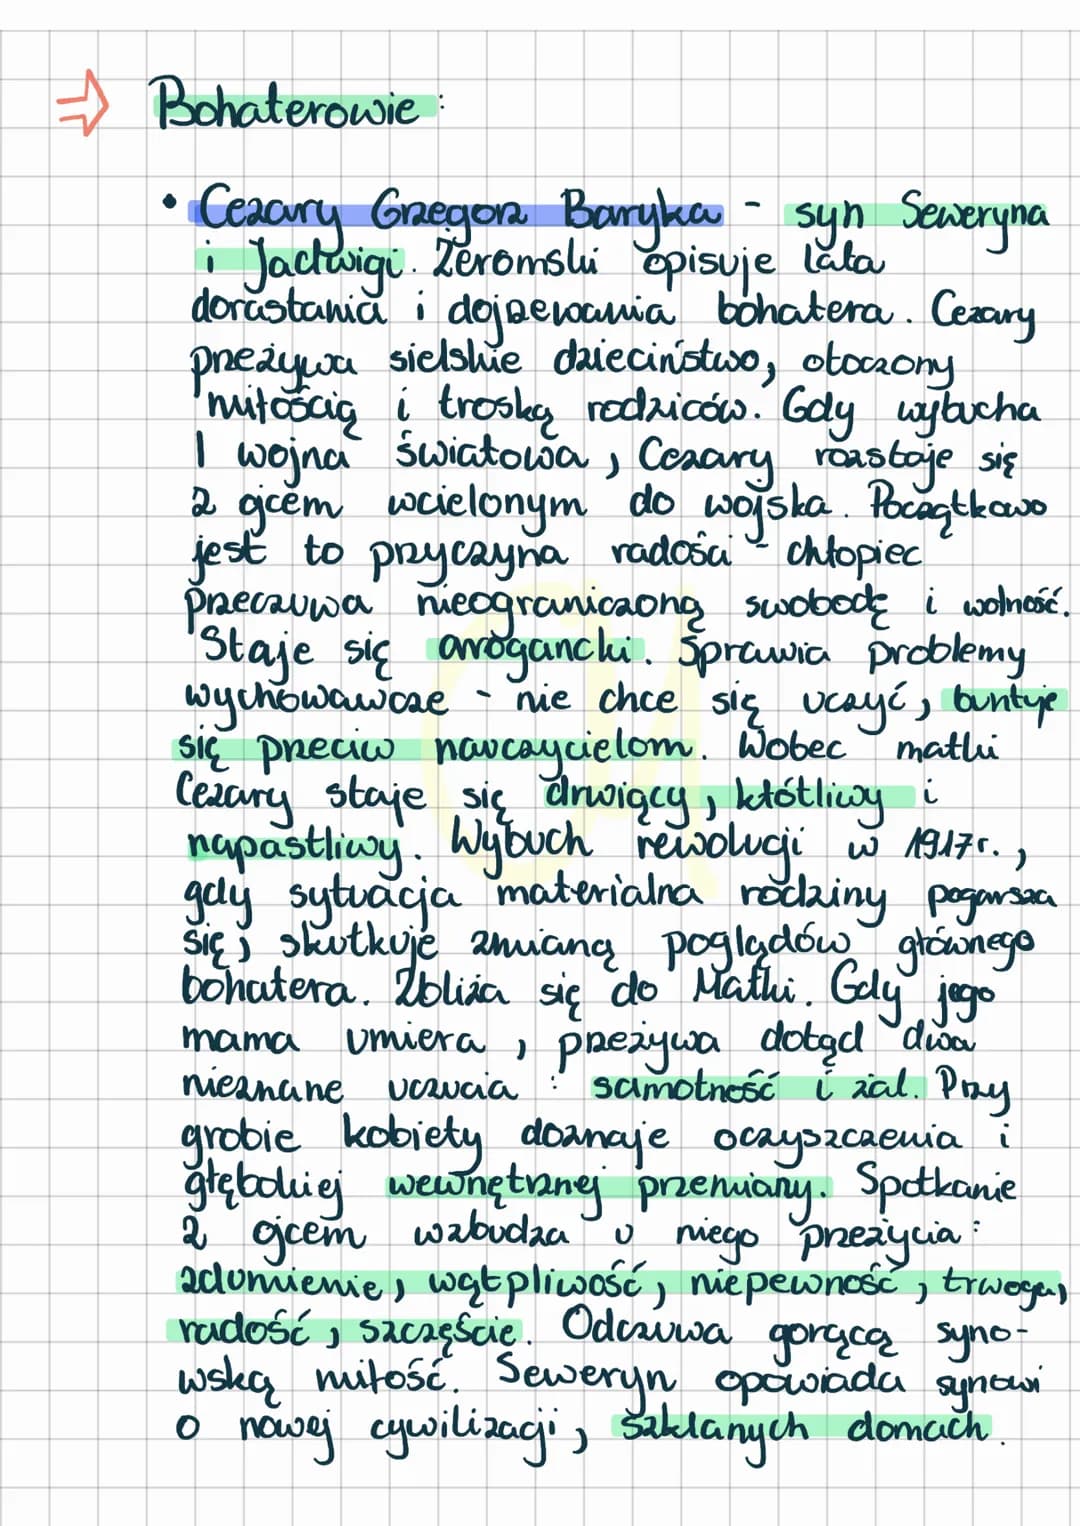 ⇒ Bohaterowie:
• Cezary Grzegorz Baryka - syn Seweryna
i Jadwigi. Żeromski opisuje lata
dorastania i dojrzewania bohatera. Cezary
przeżywa sielskie dzieciństwo, otoczony
miłością i troską rodziców. Gdy wybucha
I wojna światowa, Cezary rozstaje się
z ojcem wcielonym do wojska. Początkowo
jest to przyczyna radości - chłopiec
przeczuwa nieograniczoną swobodę i wolność.
Staje się arogancki. Sprawia problemy
wychowawcze - nie chce się uczyć, buntuje
się przeciw nauczycielom. Wobec matki
Cezary staje się drwiący, kłótliwy i
napastliwy. Wybuch rewolucji w 1917r.,
gdy sytuacja materialna rodziny pogarsza
się, skutkuje zmianą poglądów głównego
bohatera. Zbliża się do Matki. Gdy jego
mama umiera, przeżywa dotąd dwa
nieznane uczucia: samotność i żal. Przy
grobie kobiety doznaje oczyszczenia i
głębokiej wewnętrznej przemiany. Spotkanie
z ojcem wzbudza u niego przeżycia:
zdumienie, wątpliwość, niepewność, trwogę,
radość, szczęście. Odczuwa gorącą syno-
wską miłość. Seweryn opowiada synowi
o nowej cywilizacji, szklanych domach.